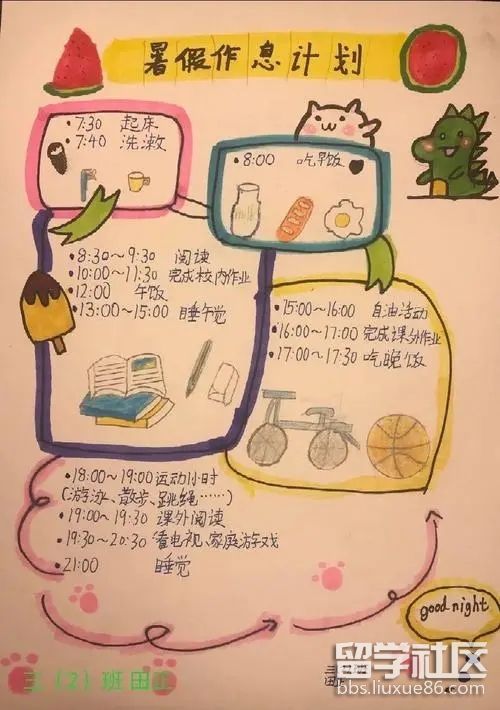 暑假作息计划
·7:30 起床
·7:40 洗漱
·8:00 吃早饭
·8:30~9:30 阅读
·10:00~11:30 完成校内作业
·12:00 午饭
·13:00~15:00 睡午觉
·15:00~16:00 自由活动
·16:00~17:00 完成课外作业
·17:00~17:30 吃晚饭
·18:00~19:00 运动1小时
(游泳、散步、跳绳……)
·19:00~19:30 课外阅读
·19:30~20:30 看电视、家庭游戏
·21:00 睡觉
good night
三(2)班田
留学社区
bbs.liuxue86.com